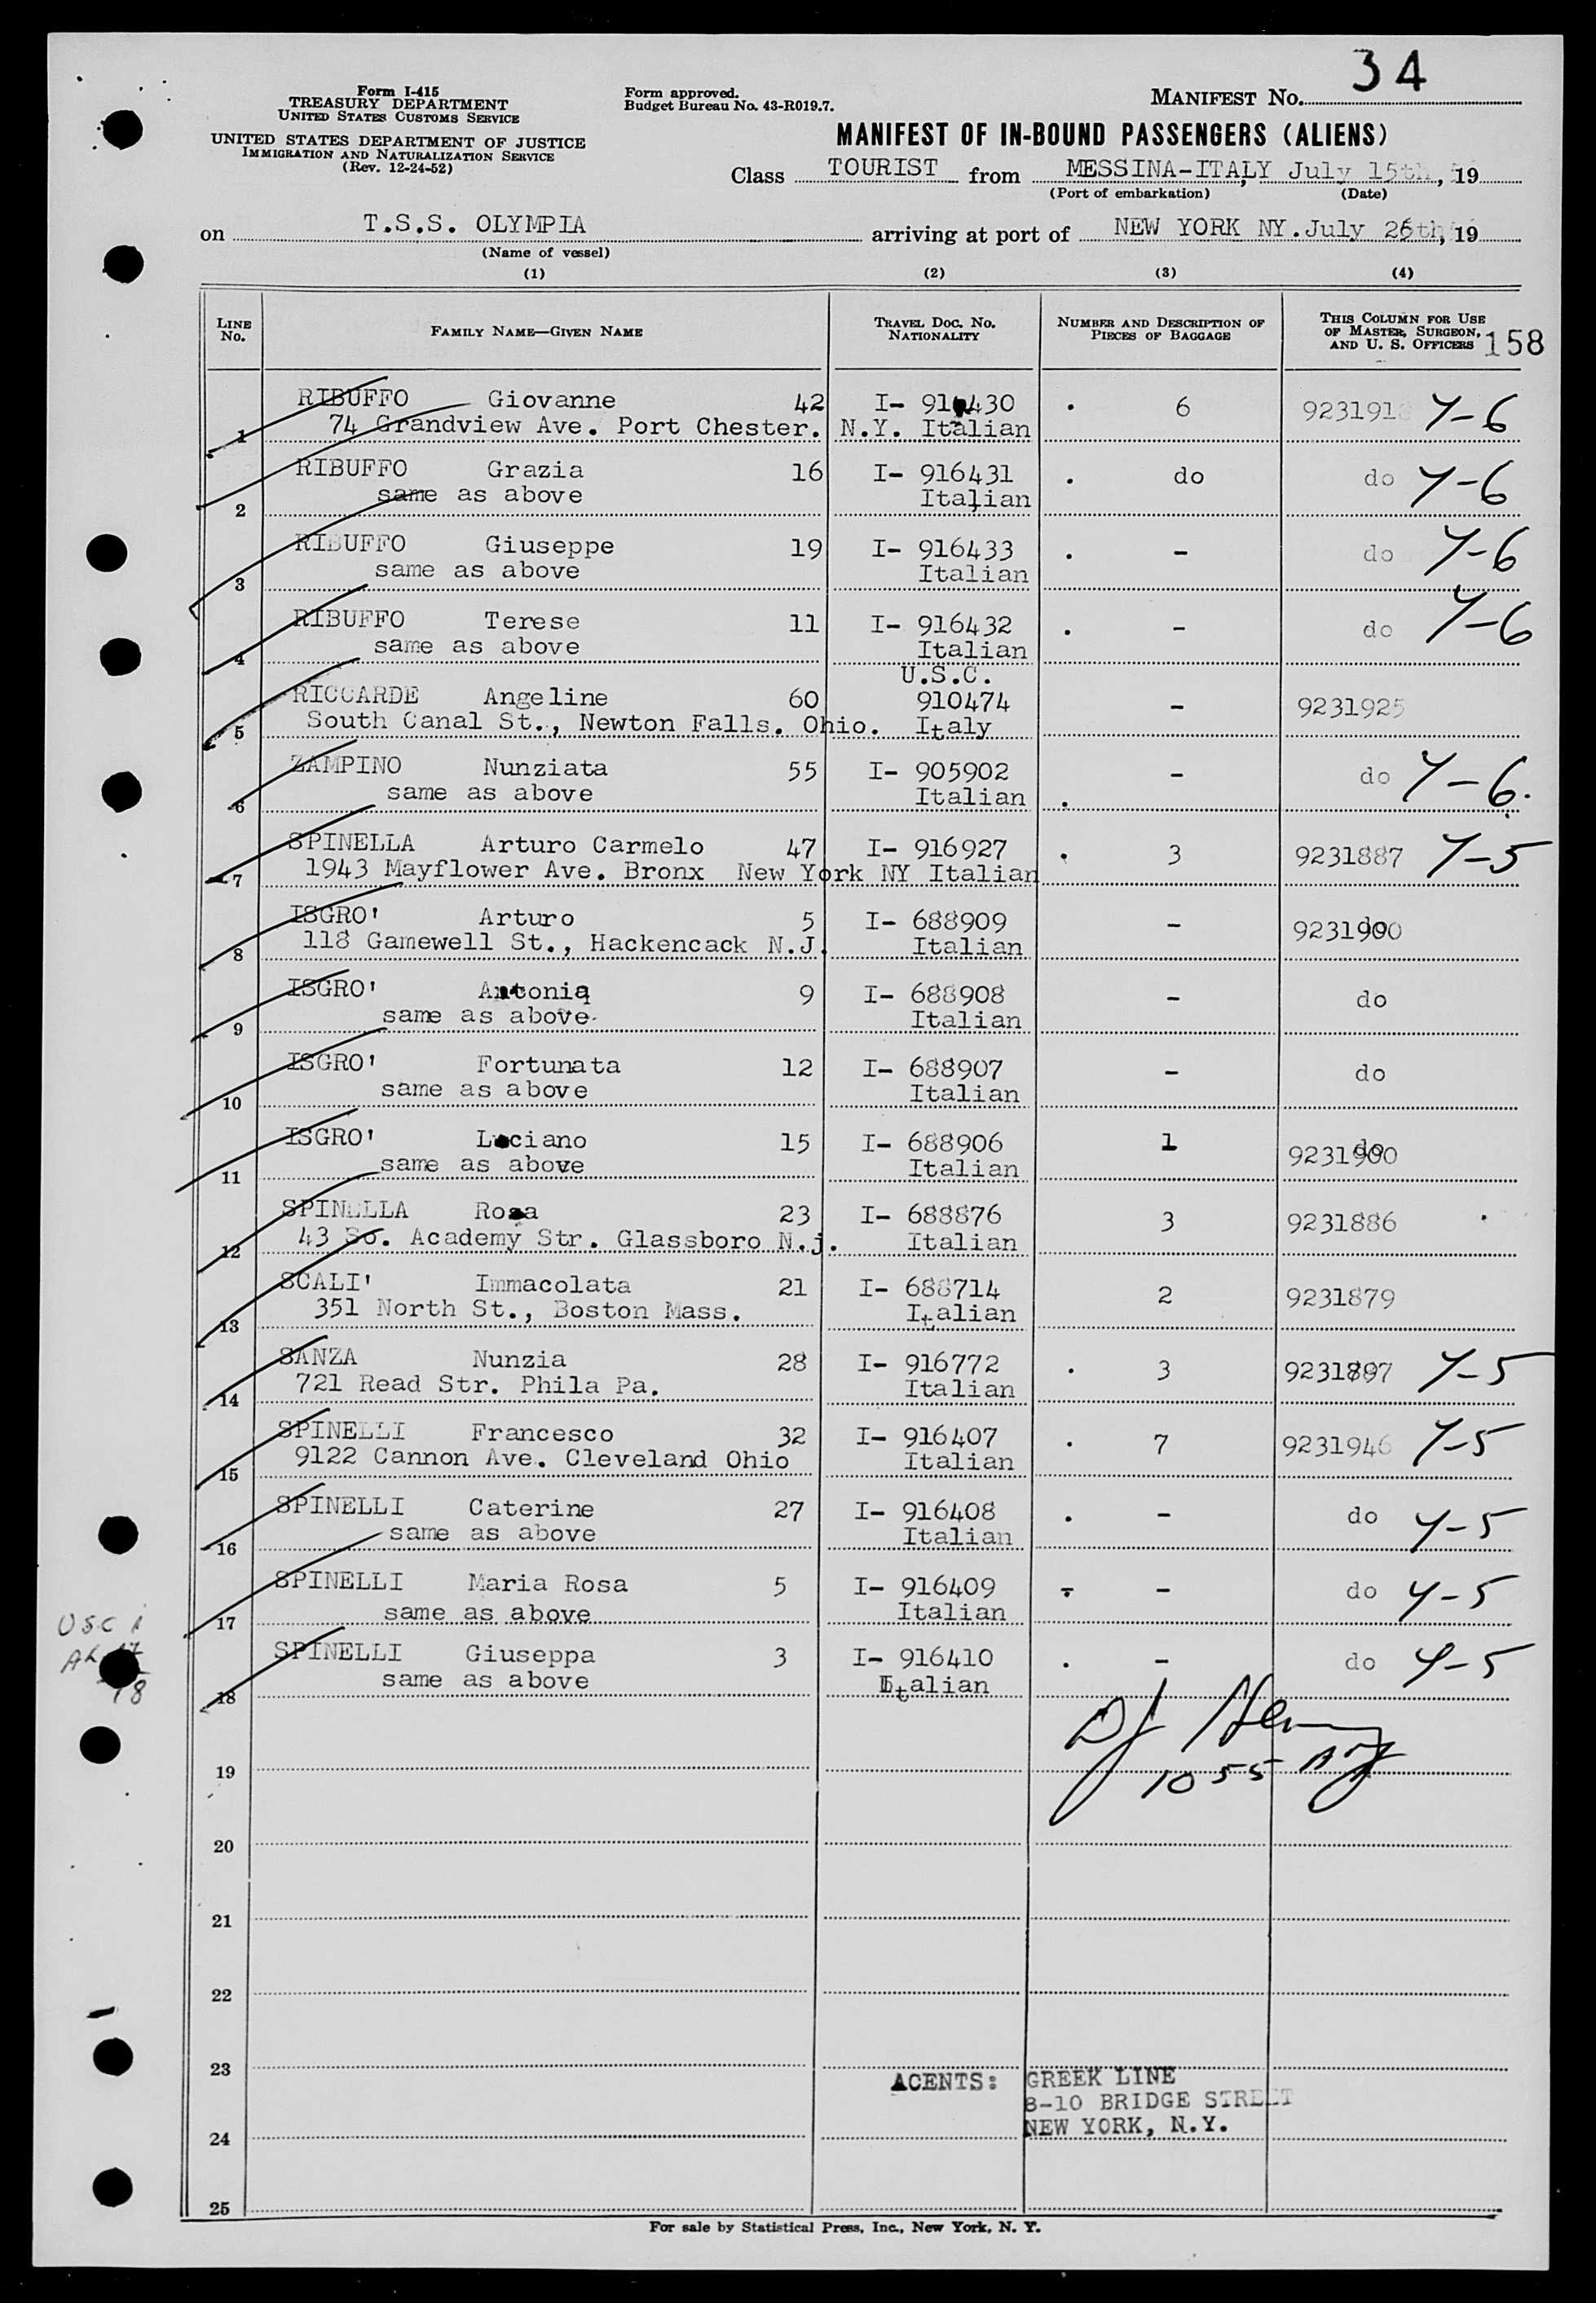 34
Form I-415
TREASURY DEPARTMENT
UNITED STATES CUSTOMS SERVICE
UNITED STATES DEPARTMENT OF JUSTICE
IMMIGRATION AND NATURALIZATION SERVICE
(Rev. 12-24-52)
Form approved.
Budget Bureau No. 43-R019.7.
MANIFEST No.
MANIFEST OF IN-BOUND PASSENGERS (ALIENS)
Class TOURIST from MESSINA-ITALY, July 15th, 19
(Port of embarkation) (Date)
on T.S.S. OLYMPIA arriving at port of NEW YORK NY. July 26th, 19
(Name of vessel)
(1) (2) (3) (4)
LINE No. FAMILY NAME—GIVEN NAME TRAVEL DOC. No. NATIONALITY NUMBER AND DESCRIPTION OF PIECES OF BAGGAGE THIS COLUMN FOR USE OF MASTER, SURGEON, AND U. S. OFFICERS 158
RIBUFFO Giovanne 42 I- 916430 6 923191 Y-6
1 74 Grandview Ave. Port Chester. N.Y. Italian
RIBUFFO Grazia 16 I- 916431 do do Y-6
2 same as above Italian
RIBUFFO Giuseppe 19 I- 916433 - do Y-6
3 same as above Italian
RIBUFFO Terese 11 I- 916432 - do Y-6
4 same as above Italian
U.S.C.
RICCARDE Angeline 60 910474 - 9231925
5 South Canal St., Newton Falls. Ohio. Italy
ZAMPINO Nunziata 55 I- 905902 - do Y-6.
6 same as above Italian
SPINELLA Arturo Carmelo 47 I- 916927 3 9231887 Y-5
7 1943 Mayflower Ave. Bronx New York NY Italian
ISGRO' Arturo 5 I- 688909 - 9231900
8 118 Gamewell St., Hackencack N.J. Italian
ISGRO' Antonia 9 I- 688908 - do
9 same as above. Italian
ISGRO' Fortunata 12 I- 688907 - do
10 same as above Italian
ISGRO' Luciano 15 I- 688906 1 9231900
11 same as above Italian
SPINELLA Rosa 23 I- 688876 3 9231886
12 43 So. Academy Str. Glassboro N.j. Italian
SCALI' Immacolata 21 I- 688714 2 9231879
13 351 North St., Boston Mass. Italian
SANZA Nunzia 28 I- 916772 3 9231897 Y-5
14 721 Read Str. Phila Pa. Italian
SPINELLI Francesco 32 I- 916407 7 9231946 Y-5
15 9122 Cannon Ave. Cleveland Ohio Italian
SPINELLI Caterine 27 I- 916408 - do Y-5
16 same as above Italian
SPINELLI Maria Rosa 5 I- 916409 - - do Y-5
17 same as above Italian
USC 1
SPINELLI Giuseppa 3 I- 916410 - do Y-5
18 same as above Italian
18
19
1055
20
21
22
23
ACENTS: GREEK LINE
8-10 BRIDGE STREET
NEW YORK, N.Y.
24
25
For sale by Statistical Press, Inc., New York, N. Y.